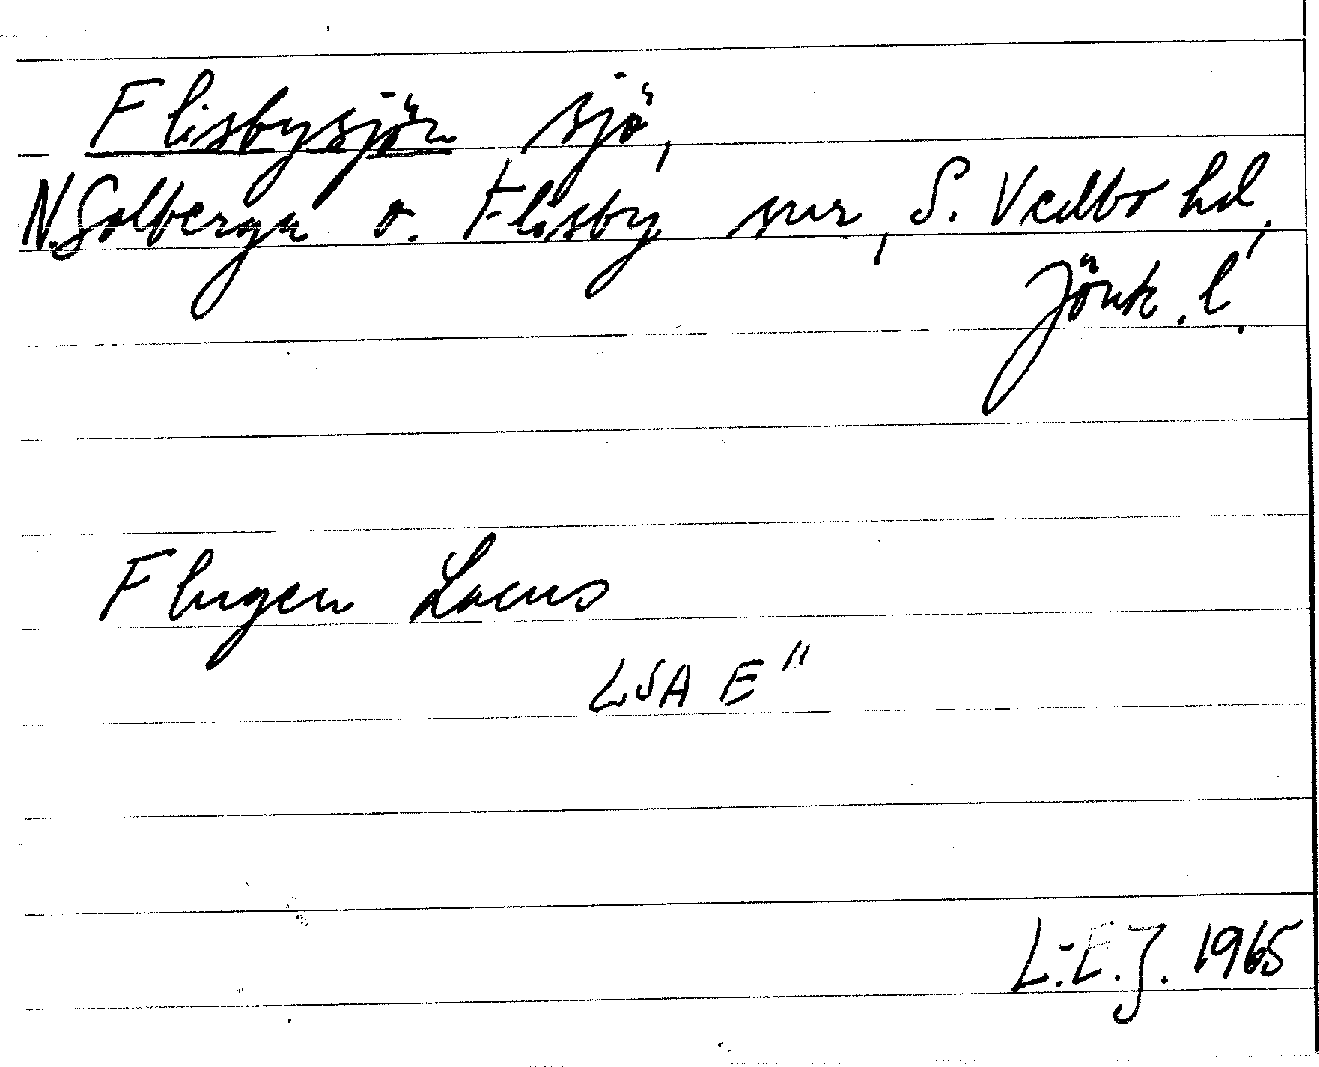 Flisbysjön sjö,
N.Solberga o. Flisby snr, S. Vedbo hd,
Jönk. l.
Flugen Lacus
LSA E"
L.-E.J. 1965